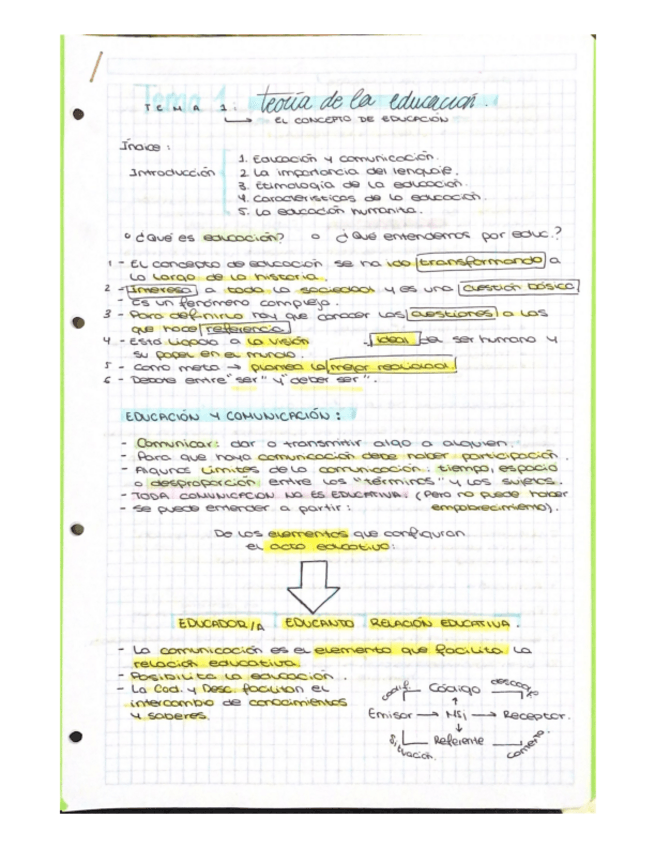 TEMA 1: teoría de la educación.
EL CONCEPTO DE EDUCACIÓN
Índice:
Introducción
1. Educación y comunicación.
2 La importancia del lenguaje.
3. Etimología de la educación.
4. Características de la educación.
5. La educación humanita.
¿Qué es educación? ¿Qué entendemos por educ.?
1 - El concepto de educación se ha ido transformando a
lo largo de la historia.
2 - Interesa a toda la sociedad y es una cuestión básica
- Es un fenómeno complejo.
3 - Para definirlo hay que conocer las cuestiones a las
que hace referencia
4 - Está ligado a la visión ideal del ser humano y
su papel en el mundo.
5 - Como meta → plantea la mejor realidad
6 - Debate entre "ser" y "deber ser".
EDUCACIÓN Y COMUNICACIÓN:
- Comunicar: dar o transmitir algo a alguien.
- Para que haya comunicación debe haber participación.
- Algunos límites de la comunicación: tiempo, espacio
o desproporción entre los "términos" y los sujetos.
- TODA COMUNICACIÓN NO ES EDUCATIVA. (Pero no puede haber
empobrecimiento).
- Se puede entender a partir:
De los elementos que configuran
el acto educativo:
EDUCADOR/A EDUCANTO RELACIÓN EDUCATIVA.
- La comunicación es el elemento que facilita la
relación educativa.
- Posibilita la educación.
- La Cod. y Desc. facilitan el
intercambio de conocimientos
y saberes.
codif. Código descod
Emisor → Msj → Receptor.
Situación. Referente